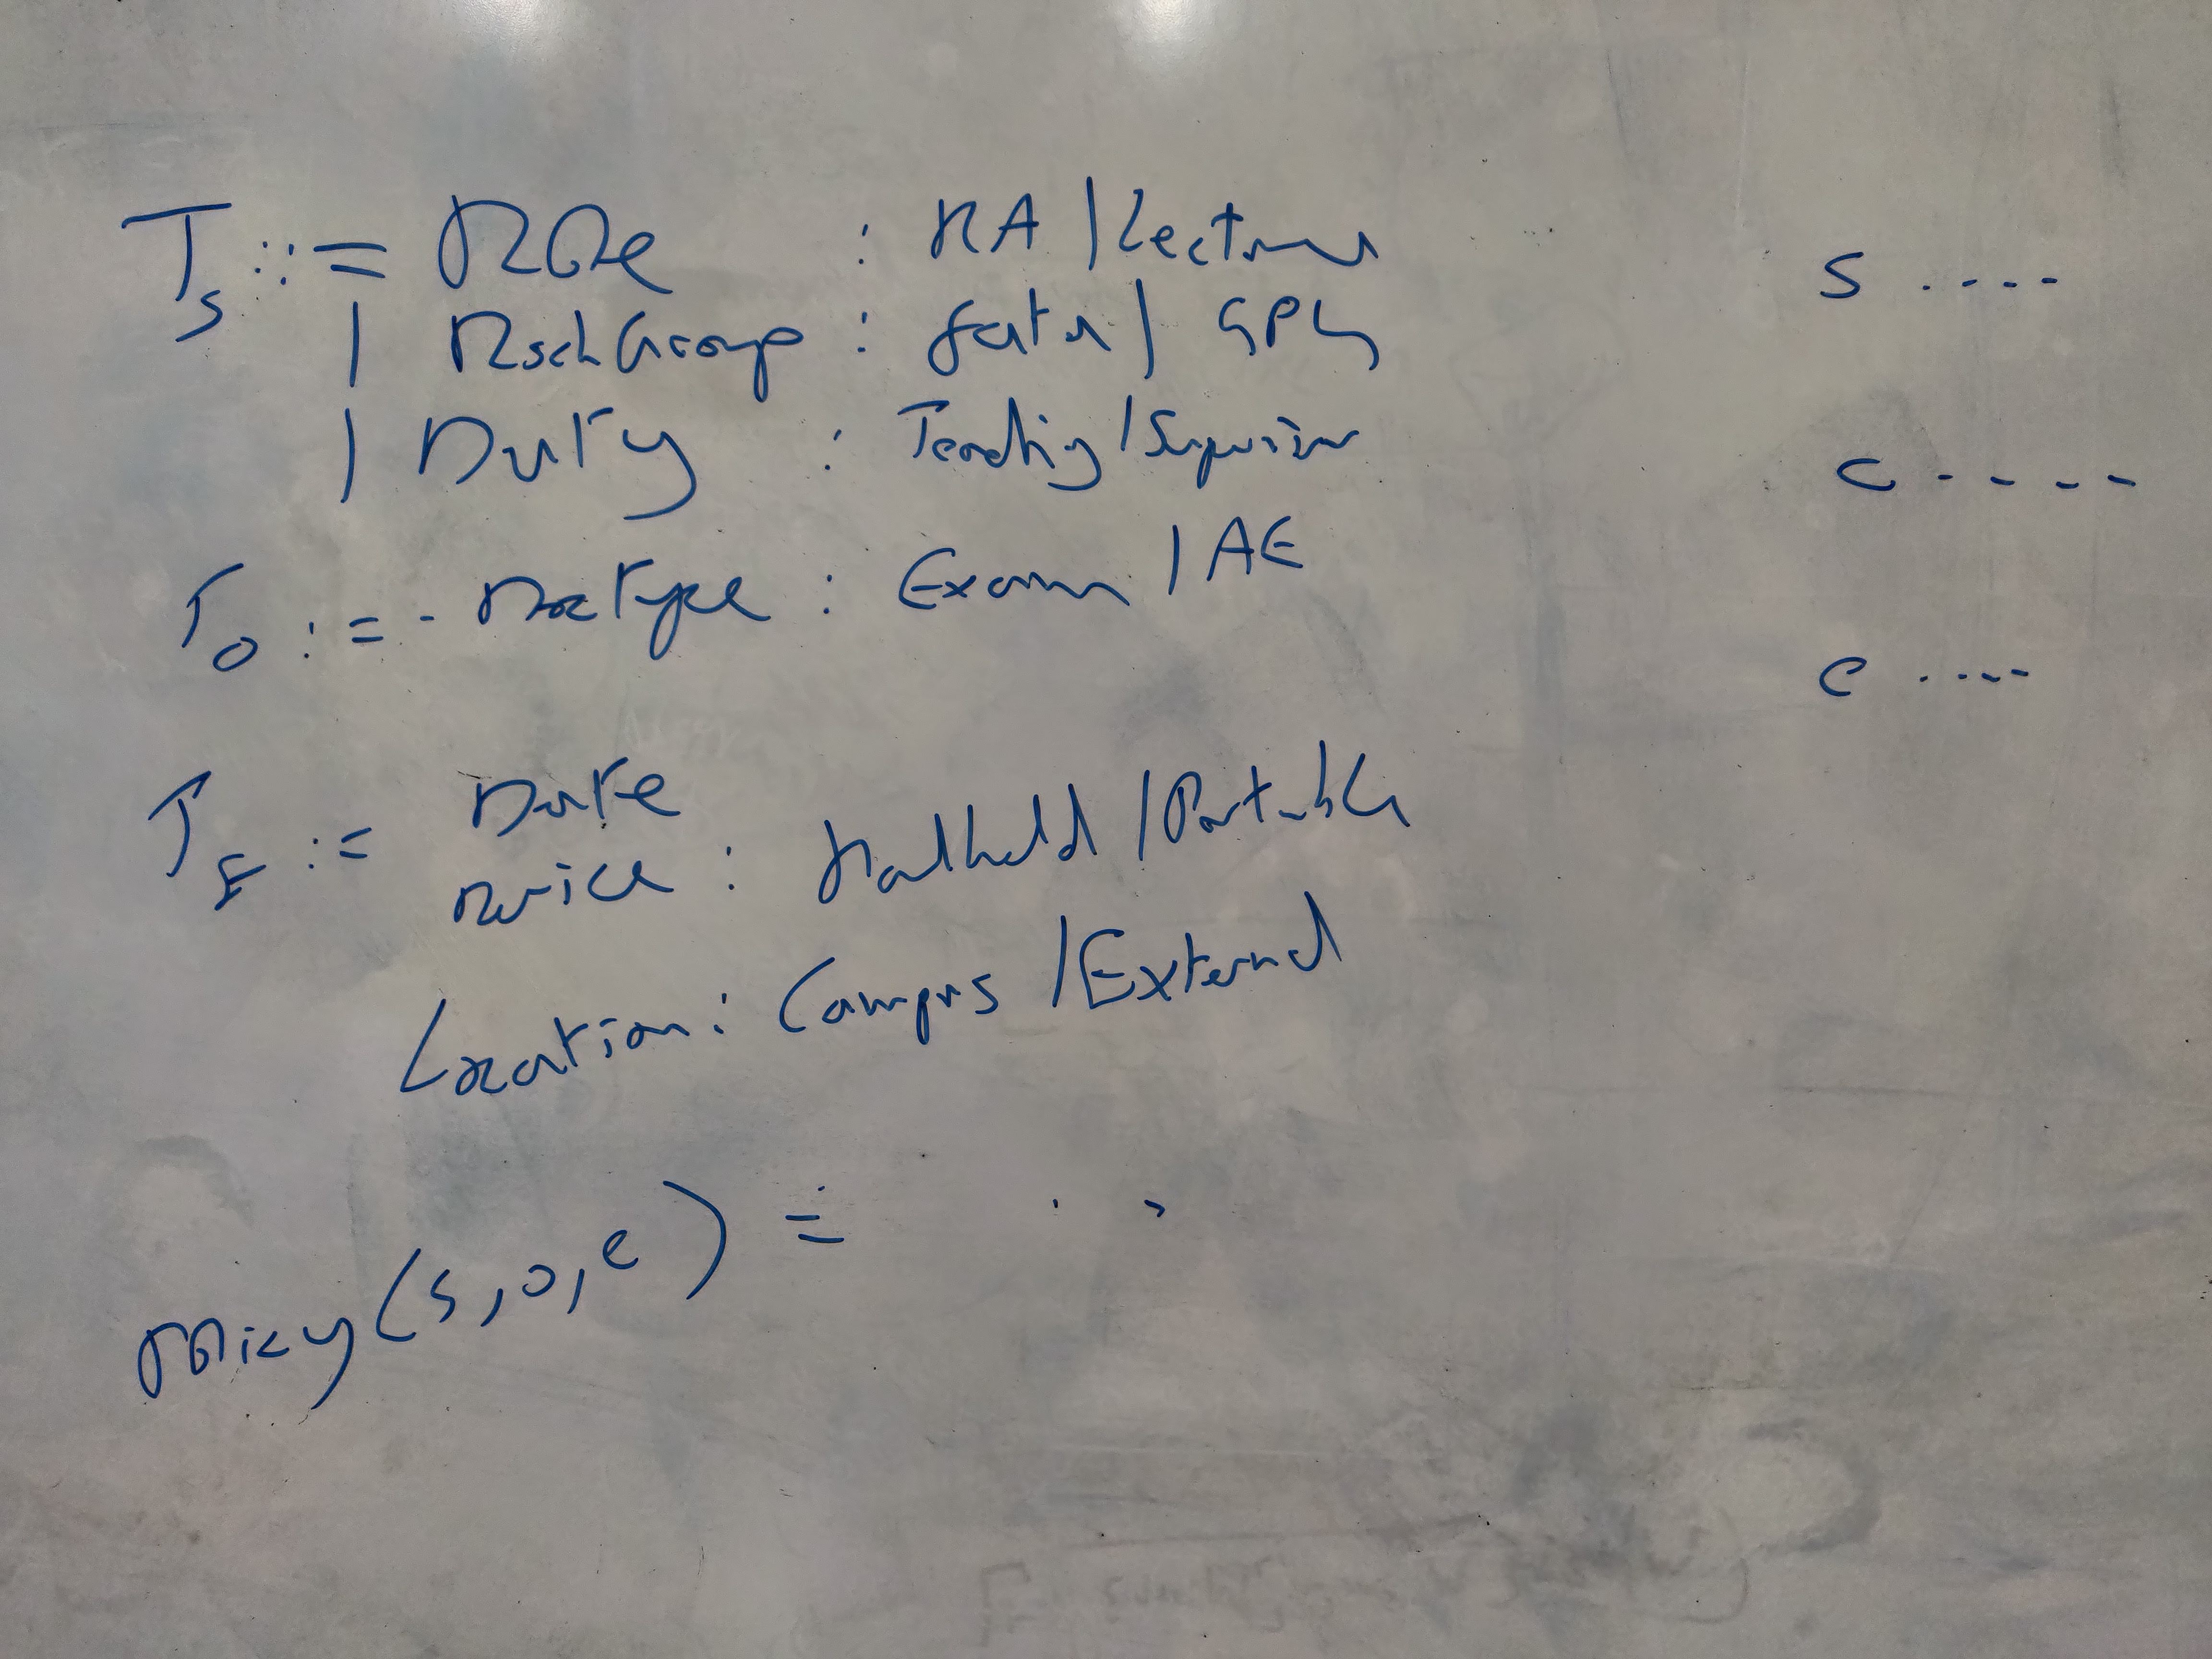 T_S ::= Role : RA | Lecturer
| RschGroup : | GPG
| Duty : Teaching | Supervisor
T_O := - DocType : Exam | AE
T_E := Date
Device : Handheld | Portable
Location : Campus | External
Policy (s, o, e) =
s ....
c - - - -
e ....